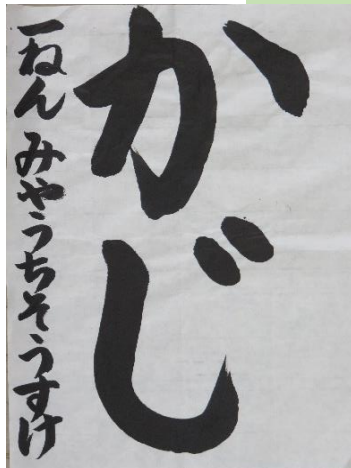 かじ
一ねん みやうちそうすけ